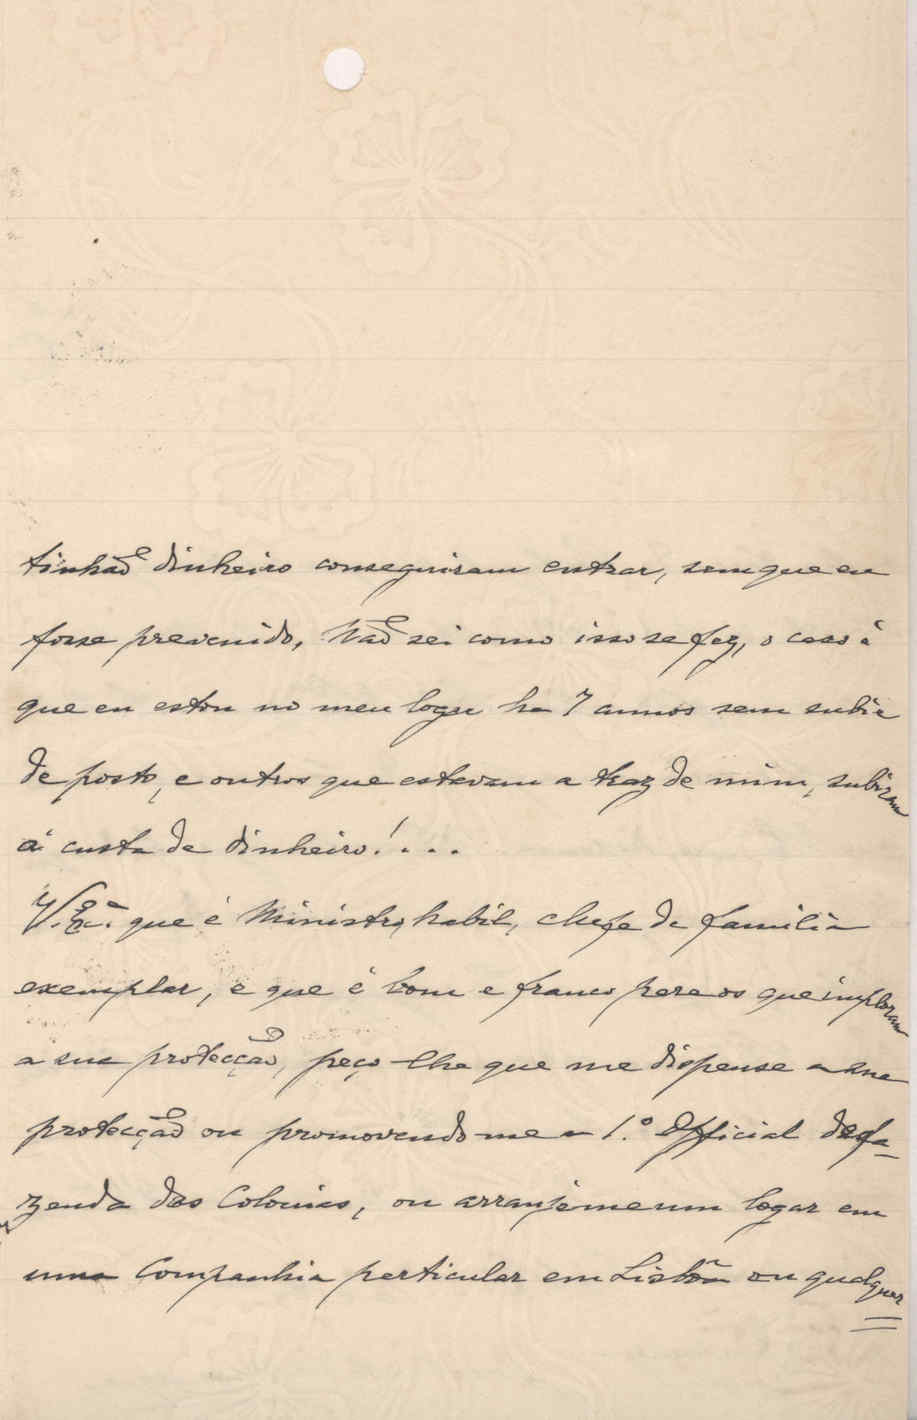 tinhaõ dinheiro conseguiram entrar, sem que eu
fosse prevenido, Naõ sei como isso se fez, o caso é
que eu estou no meu logar ha 7 annos sem subir
de posto, e outros que estavam a traz de mim, subiram
á custa de dinheiro! . . .
V. Ex.ª que é Ministro, habil, chefe de familia
exemplar, e que é bom e franco para os que imploram
a sua protecçaõ, peço-lhe que me dispense a sua
protecçaõ ou promovendo-me a 1.º Official da fa-
zenda das Colonias, ou arranje-me um logar em
uma Companhia particular em Lisbôa ou qualquer